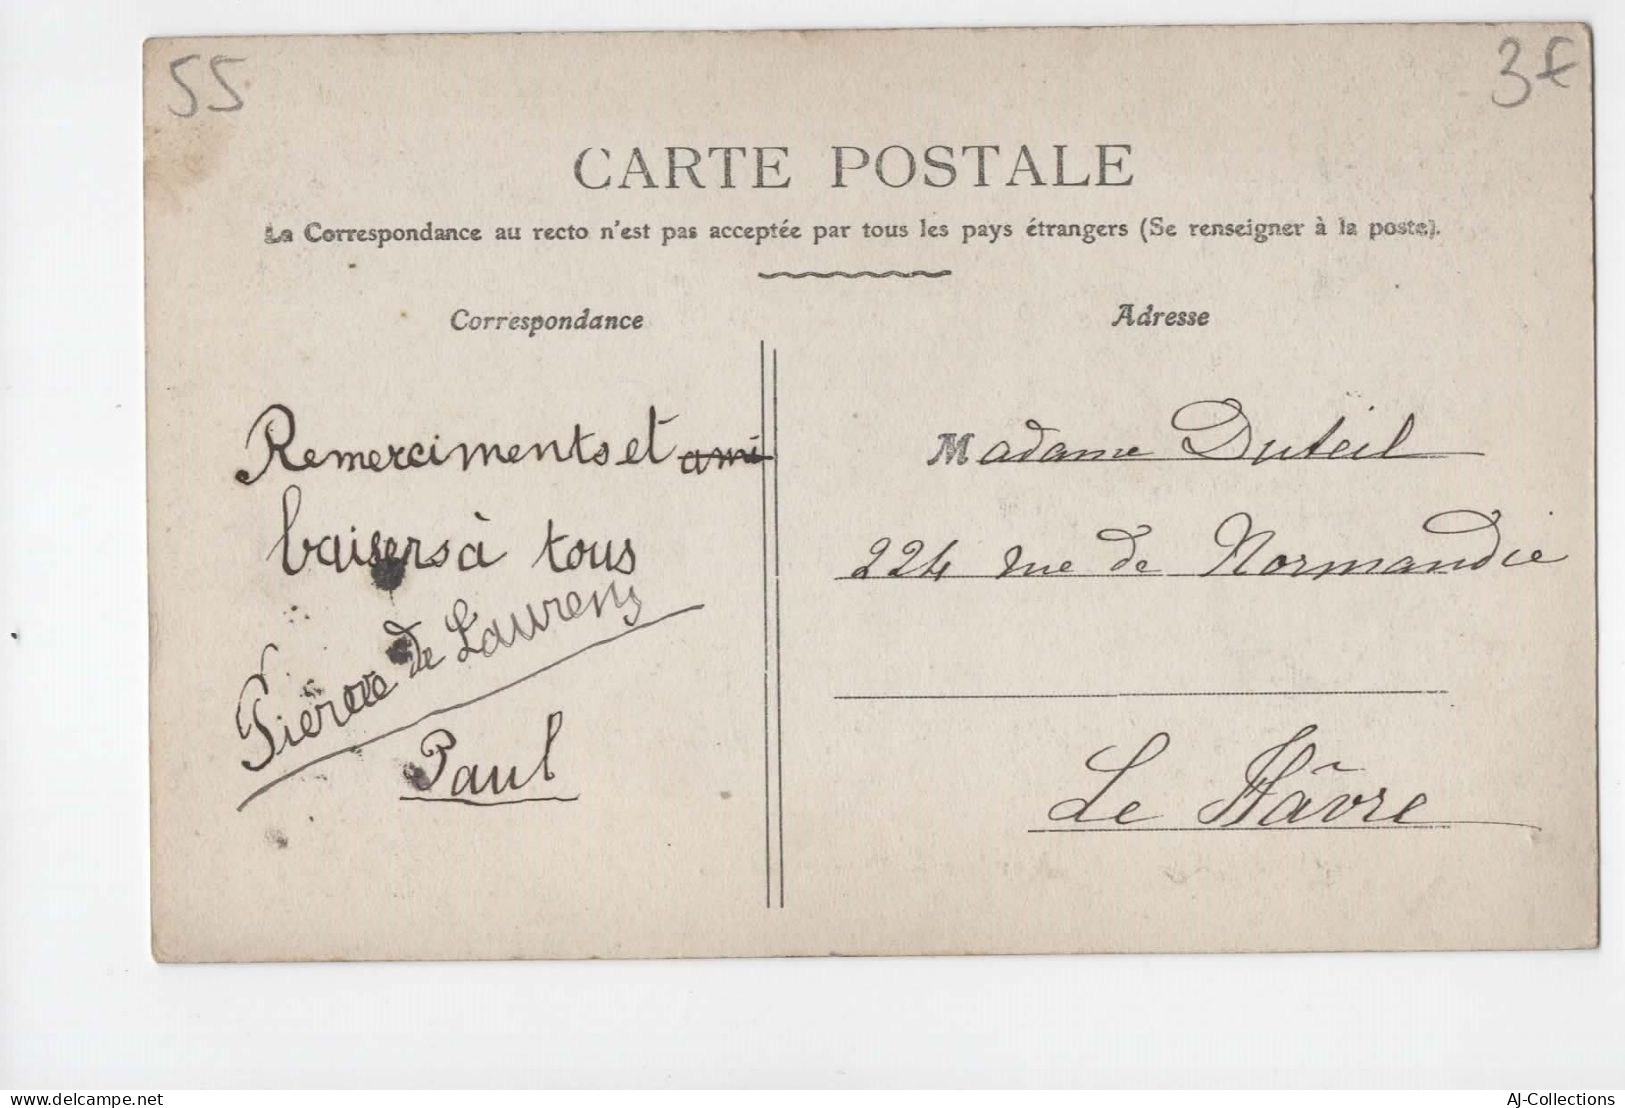 55
3€
CARTE POSTALE
La Correspondance au recto n'est pas acceptée par tous les pays étrangers (Se renseigner à la poste).
Correspondance
Adresse
Remerciments et ami
baisers à tous
Pierre de Laurens
Paul
Madame Duteil
224 rue de Normandie
Le Hâvre
delcampe.net
AJ-Collections